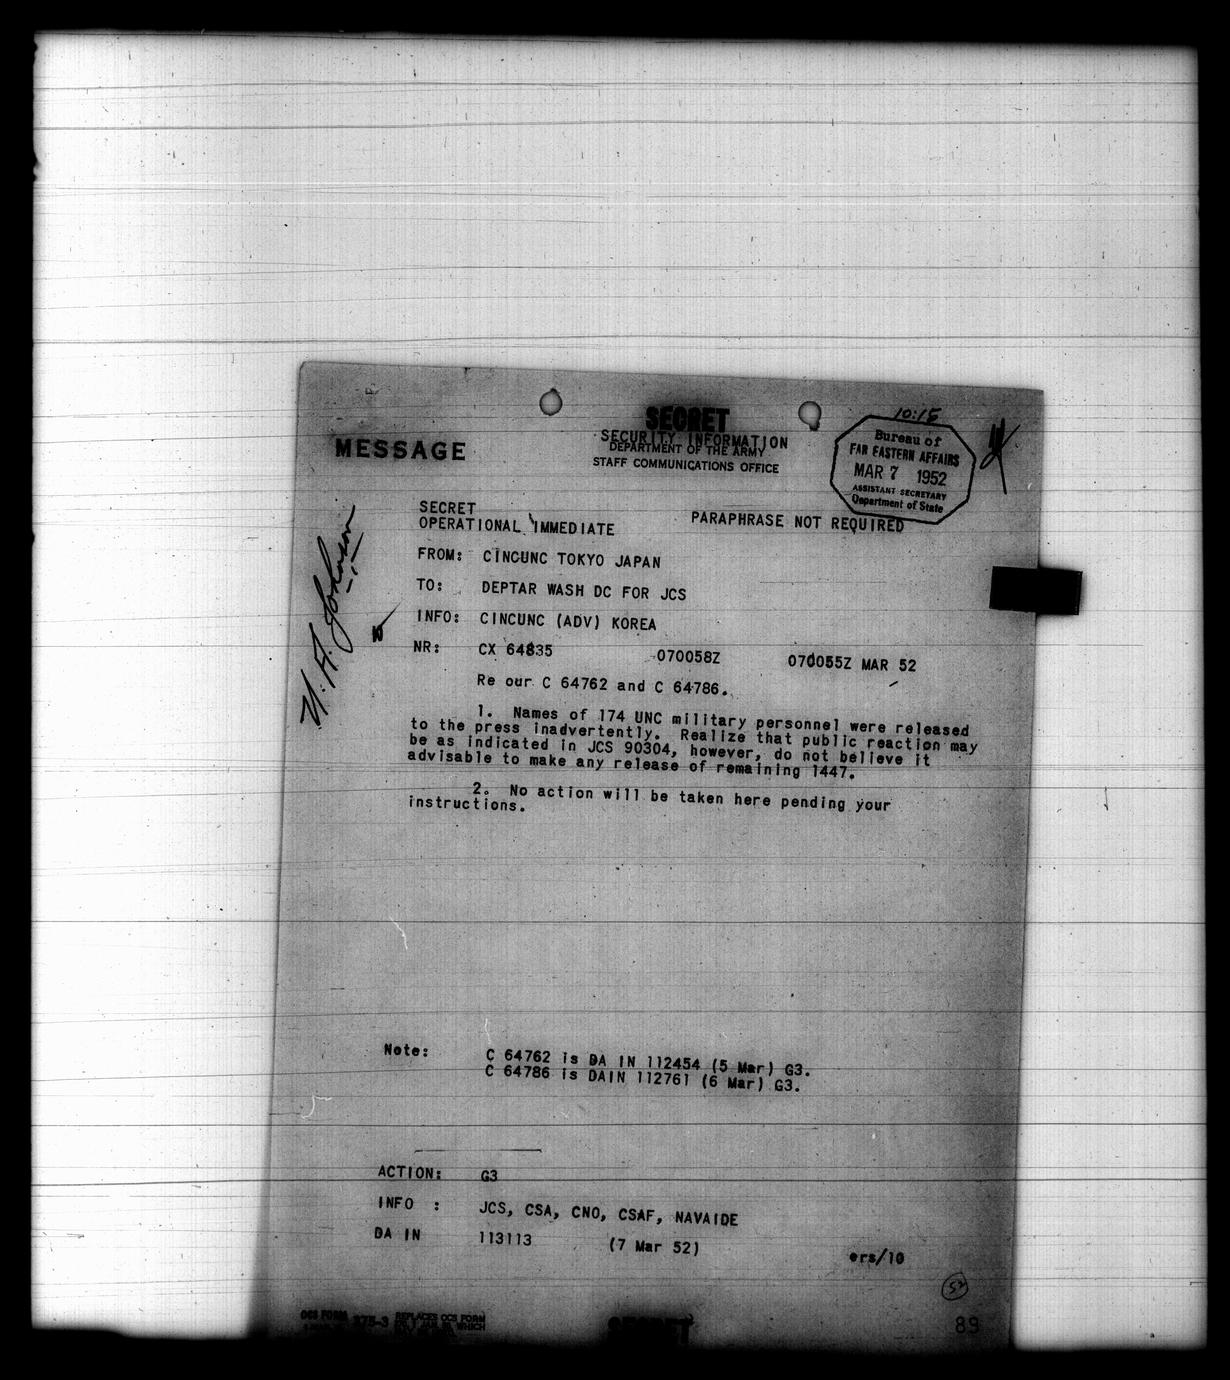 10:15
SECRET
SECURITY INFORMATION
MESSAGE
DEPARTMENT OF THE ARMY
STAFF COMMUNICATIONS OFFICE
Bureau of
FAR EASTERN AFFAIRS
MAR 7 1952
ASSISTANT SECRETARY
Department of State
SECRET
OPERATIONAL IMMEDIATE PARAPHRASE NOT REQUIRED
U. A. Johnson
FROM: CINCUNC TOKYO JAPAN
TO: DEPTAR WASH DC FOR JCS
INFO: CINCUNC (ADV) KOREA
NR: CX 64835 070058Z 070055Z MAR 52
Re our C 64762 and C 64786.
1. Names of 174 UNC military personnel were released
to the press inadvertently. Realize that public reaction may
be as indicated in JCS 90304, however, do not believe it
advisable to make any release of remaining 1447.
2. No action will be taken here pending your
instructions.
Note: C 64762 is DA IN 112454 (5 Mar) G3.
C 64786 is DAIN 112761 (6 Mar) G3.
ACTION: G3
INFO : JCS, CSA, CNO, CSAF, NAVAIDE
DA IN 113113 (7 Mar 52)
ers/10
52
OCS FORM 375-3 REPLACES OCS FORM
WHICH
SECRET
89